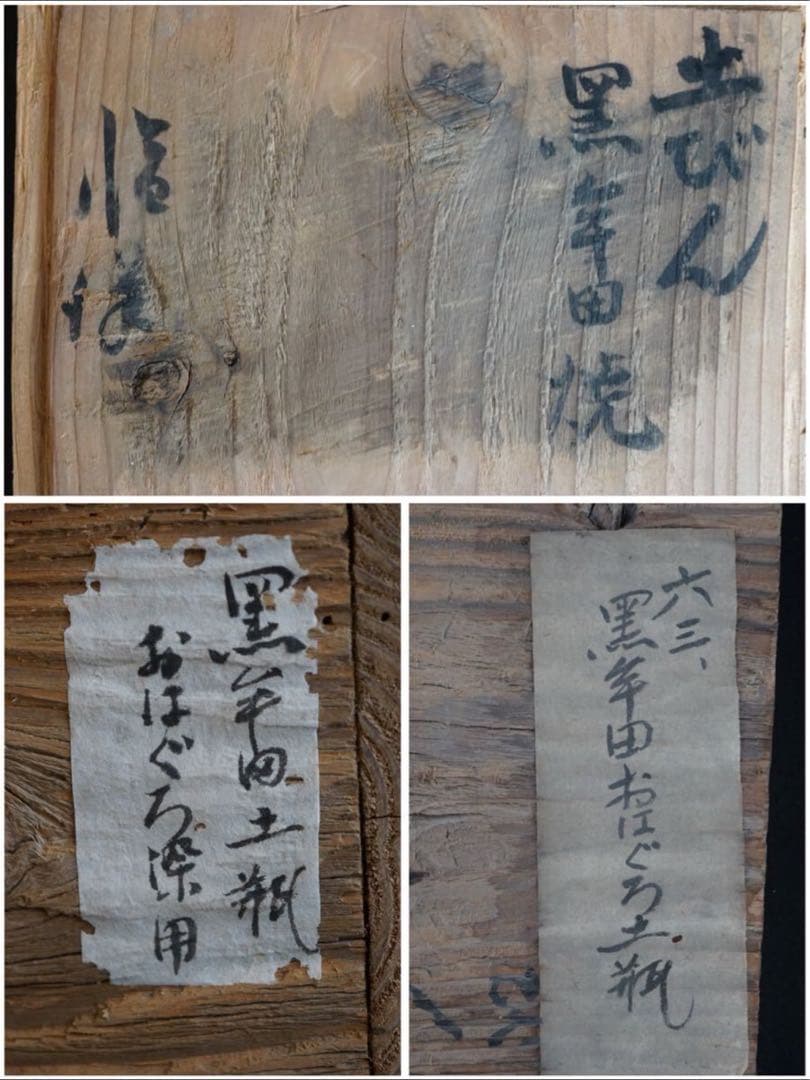 土びん
黒牟田焼
黒牟田土瓶
おはぐろ染用
六三、
黒牟田おはぐろ土瓶